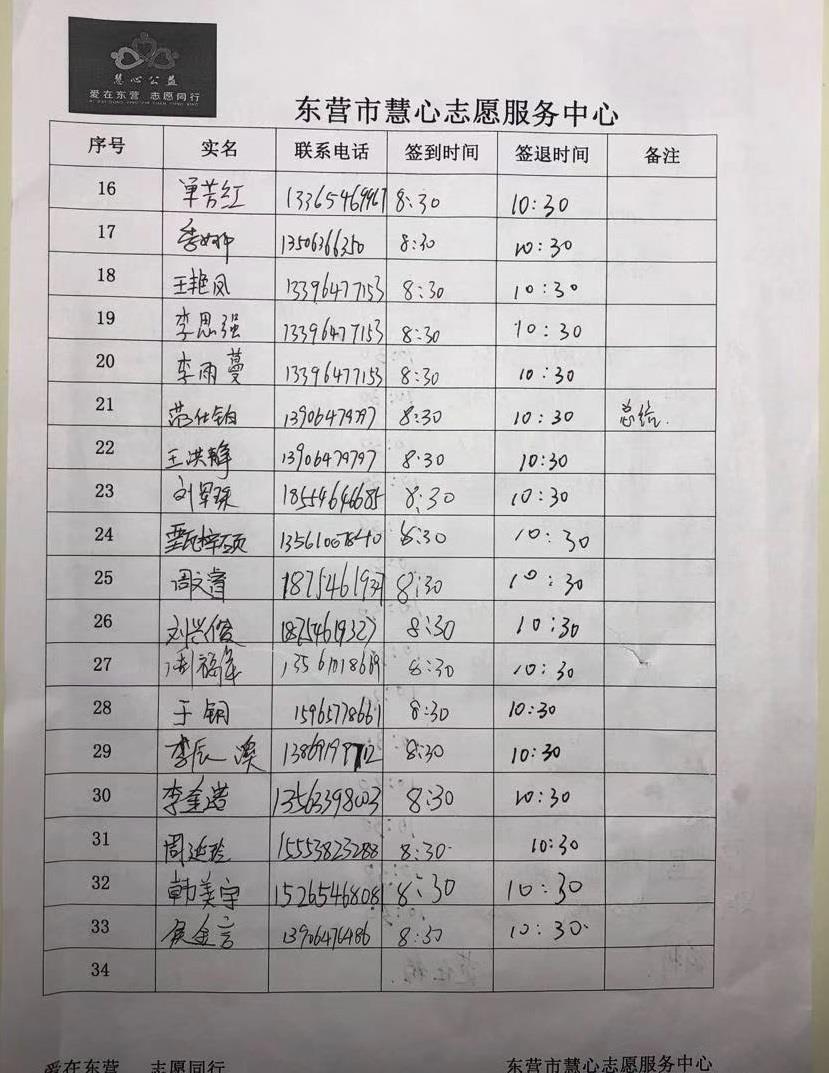 慧心公益
爱在东营 志愿同行
东营市慧心志愿服务中心
序号 实名 联系电话 签到时间 签退时间 备注
16 单芳红 13365469967 8:30 10:30
17 季婷 13506366350 8:30 10:30
18 王艳凤 13396477153 8:30 10:30
19 李思强 13396477153 8:30 10:30
20 李雨蔓 13396477153 8:30 10:30
21 13906479797 8:30 10:30 总结.
22 王洪静 13906479797 8:30 10:30
23 刘翠珠 18554646685 8:30 10:30
24 甄梓硕 8:30 10:30
25 周文睿 8:30 10:30
26 刘兴俊 18754619327 8:30 10:30
27 8:30 10:30
28 于钢 15965778661 8:30 10:30
29 李辰 8:30 10:30
30 李奎浩 13563398003 8:30 10:30
31 周延玲 15553823288 8:30 10:30
32 韩美宇 15265468081 8:30 10:30
33 侯金言 13906476486 8:30 10:30
34
爱在东营 志愿同行 东营市慧心志愿服务中心